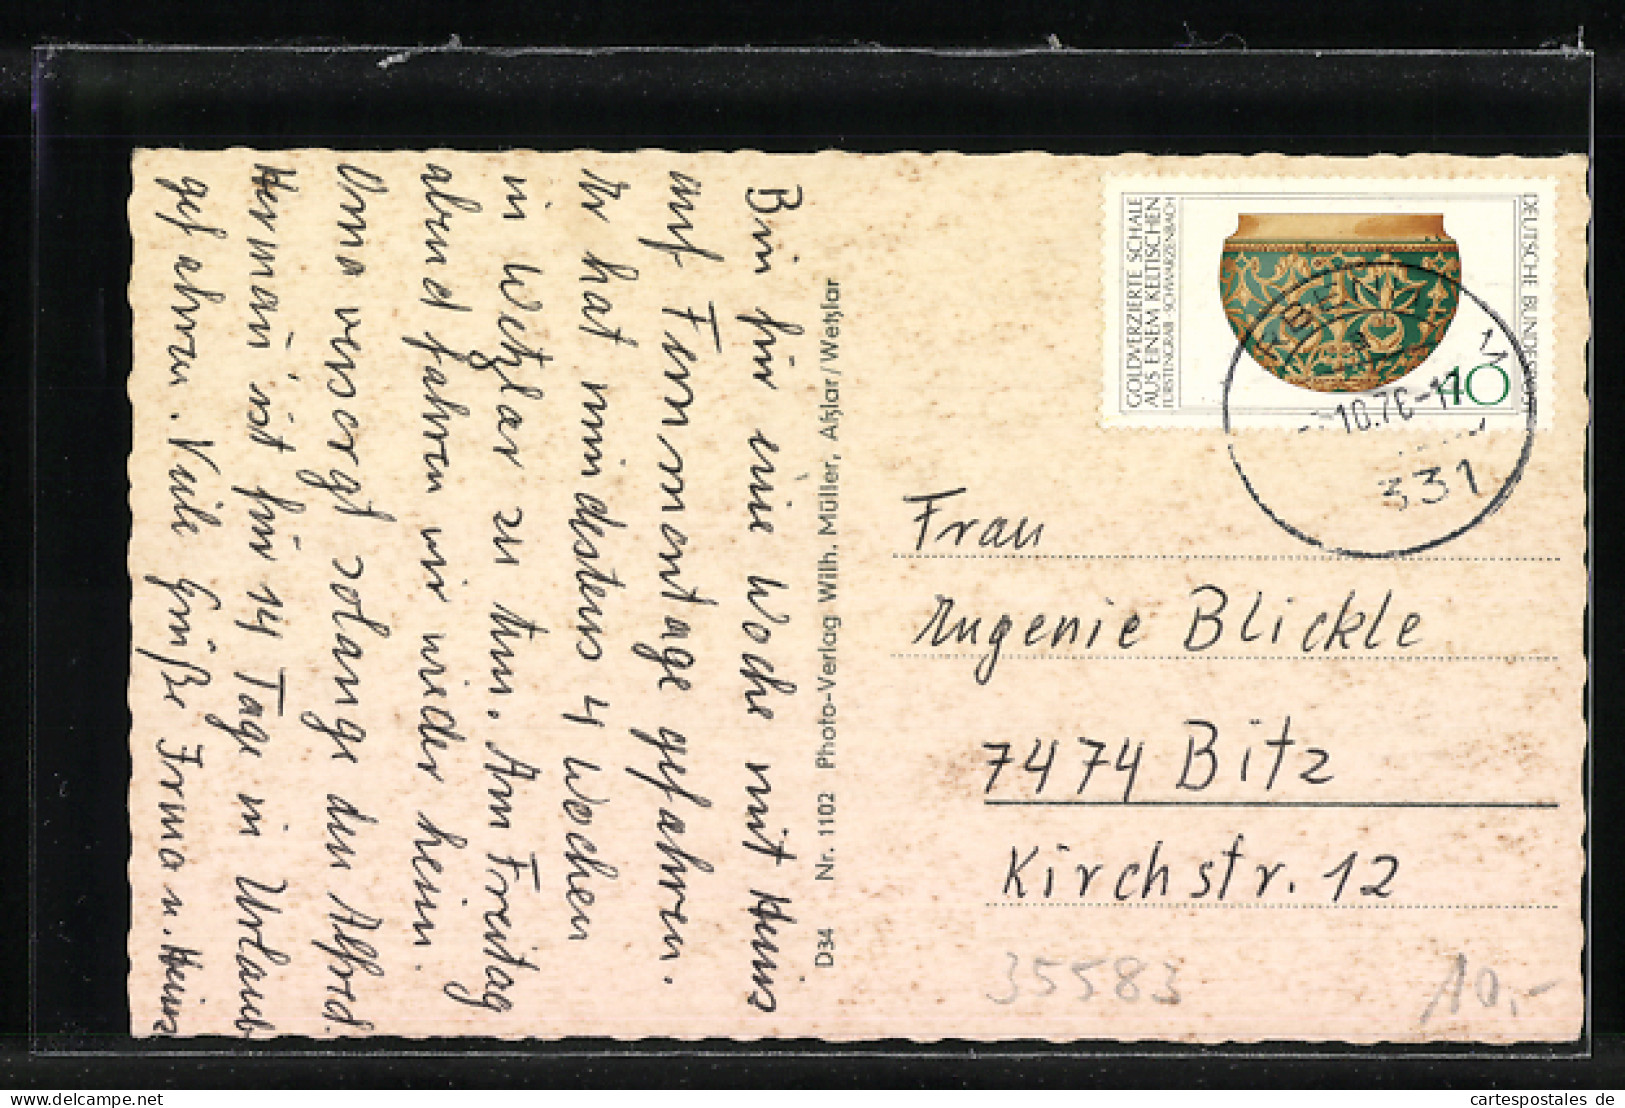 Bin für eine Woche mit Heinz
auf Fernmontage gefahren.
Er hat mindestens 4 Wochen
in Wetzlar zu tun. Am Freitag
abend fahren wir wieder heim.
Oma versorgt solange den Alfred.
Hermann ist für 14 Tage in Urlaub
gefahren. Viele Grüße Irma u. Heinz
D34 Nr. 1102 Photo-Verlag Wilh. Müller, Aßlar/Wetzlar
GOLDVERZIERTE SCHALE
AUS EINEM KELTISCHEN
FÜRSTENGRAB · SCHWARZENBACH
DEUTSCHE BUNDESPOST
40
10.76-17
331
Frau
Eugenie Blickle
7474 Bitz
Kirchstr. 12
35583
10,-
cartespostales de